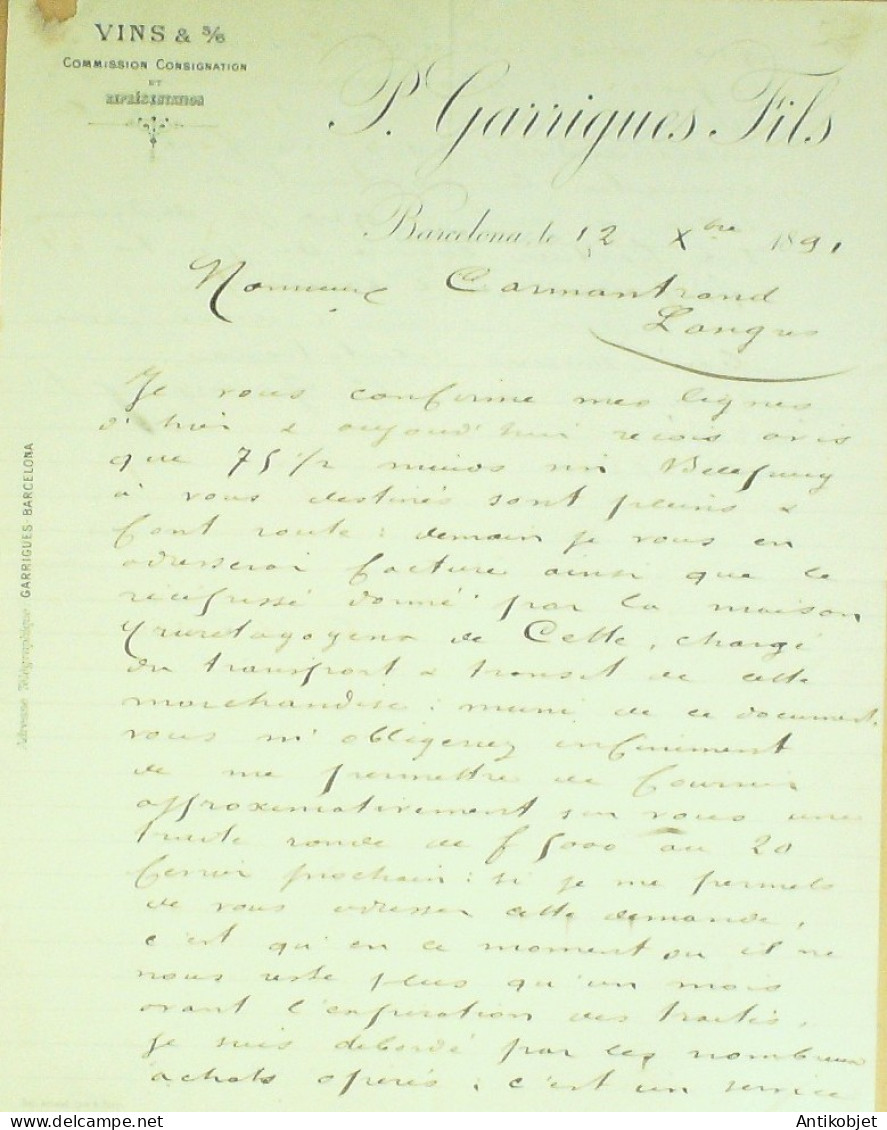 VINS & 3/6
COMMISSION CONSIGNATION
ET
REPRÉSENTATION
P. Garrigues Fils
Barcelona, le 12 Xbre 1891
Monsieur Carmantrand
Langres
Je vous confirme mes lignes
d'hier & aujourd'hui reçois avis
que 75 1/2 muids vin
à vous destinés sont pleins &
font route : demain je vous en
adresserai facture ainsi que le
récépissé donné par la maison
Yruretagoyena de Cette, chargé
du transport & transit de cette
marchandise : muni de ce document,
vous m'obligerez infiniment
de me permettre de fournir
approximativement sur vous une
traite ronde de f 5000 au 20
février prochain : si je me permets
de vous adresser cette demande,
c'est qu'en ce moment ou il ne
nous reste plus qu'un mois
avant l'expiration des traités,
je suis débordé par les nombreux
achats operés ; c'est un service
Adresse Télégraphique: GARRIGUES BARCELONA
Antikobjet